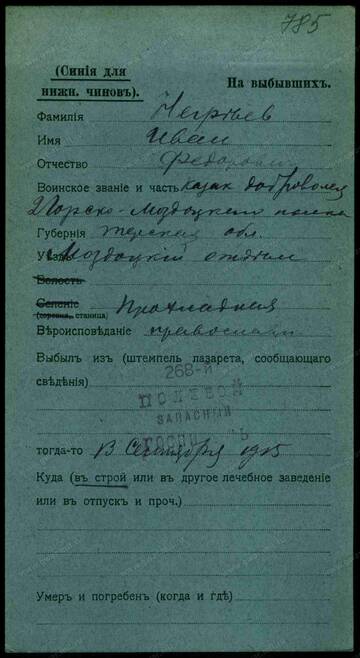 785
(Синія для
нижн. чиновъ).
На выбывшихъ.
Фамилія
Имя Иван
Отчество Федорович
Воинское званіе и часть казак доброволец
2 Горско-Моздоцкого полка
Губернія Терская обл.
Уѣздъ Моздоцкій отдѣл
Волость
Селеніе
(деревня, станица) Прохладная
Вѣроисповѣданіе православн
Выбылъ изъ (штемпель лазарета, сообщающаго
свѣдѣнія)
268-й
ПОЛЕВОЙ
ЗАПАСНЫЙ
тогда-то 13 Сентября 1915
Куда (въ строй или въ другое лечебное заведеніе
или въ отпускъ и проч.)
Умеръ и погребенъ (когда и гдѣ)